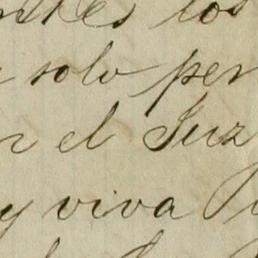 los
solo per
el Juz
y viva